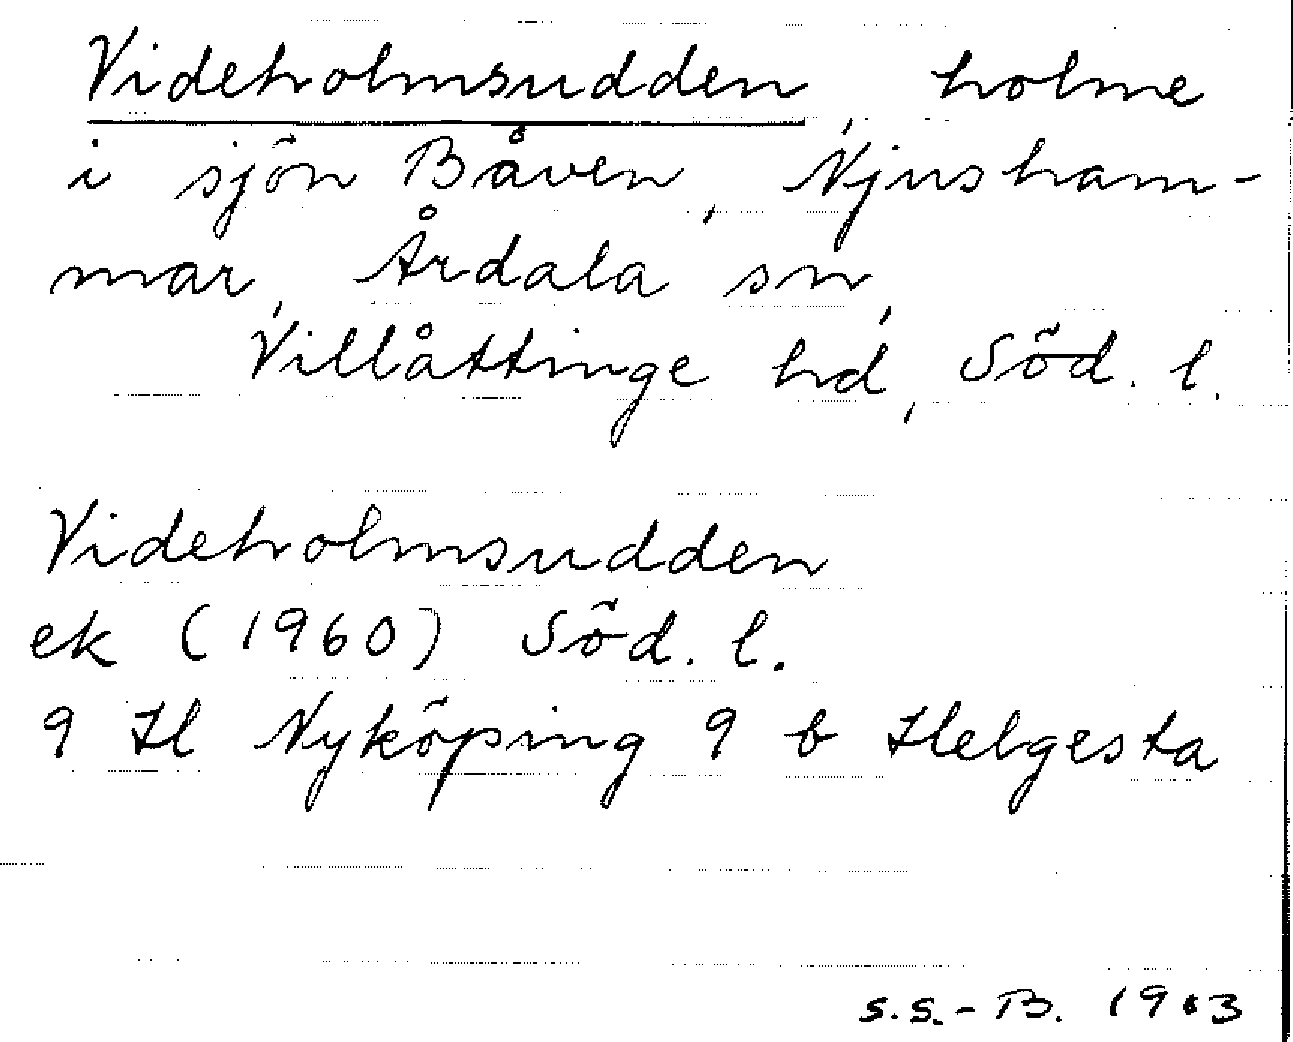 Videholmsudden, holme
i sjön Båven, Njusham-
mar, Årdala sn,
Villåttinge hd, Söd. l.
Videholmsudden
ek (1960) Söd. l.
9 H Nyköping 9 b Helgesta
S.S.-B.